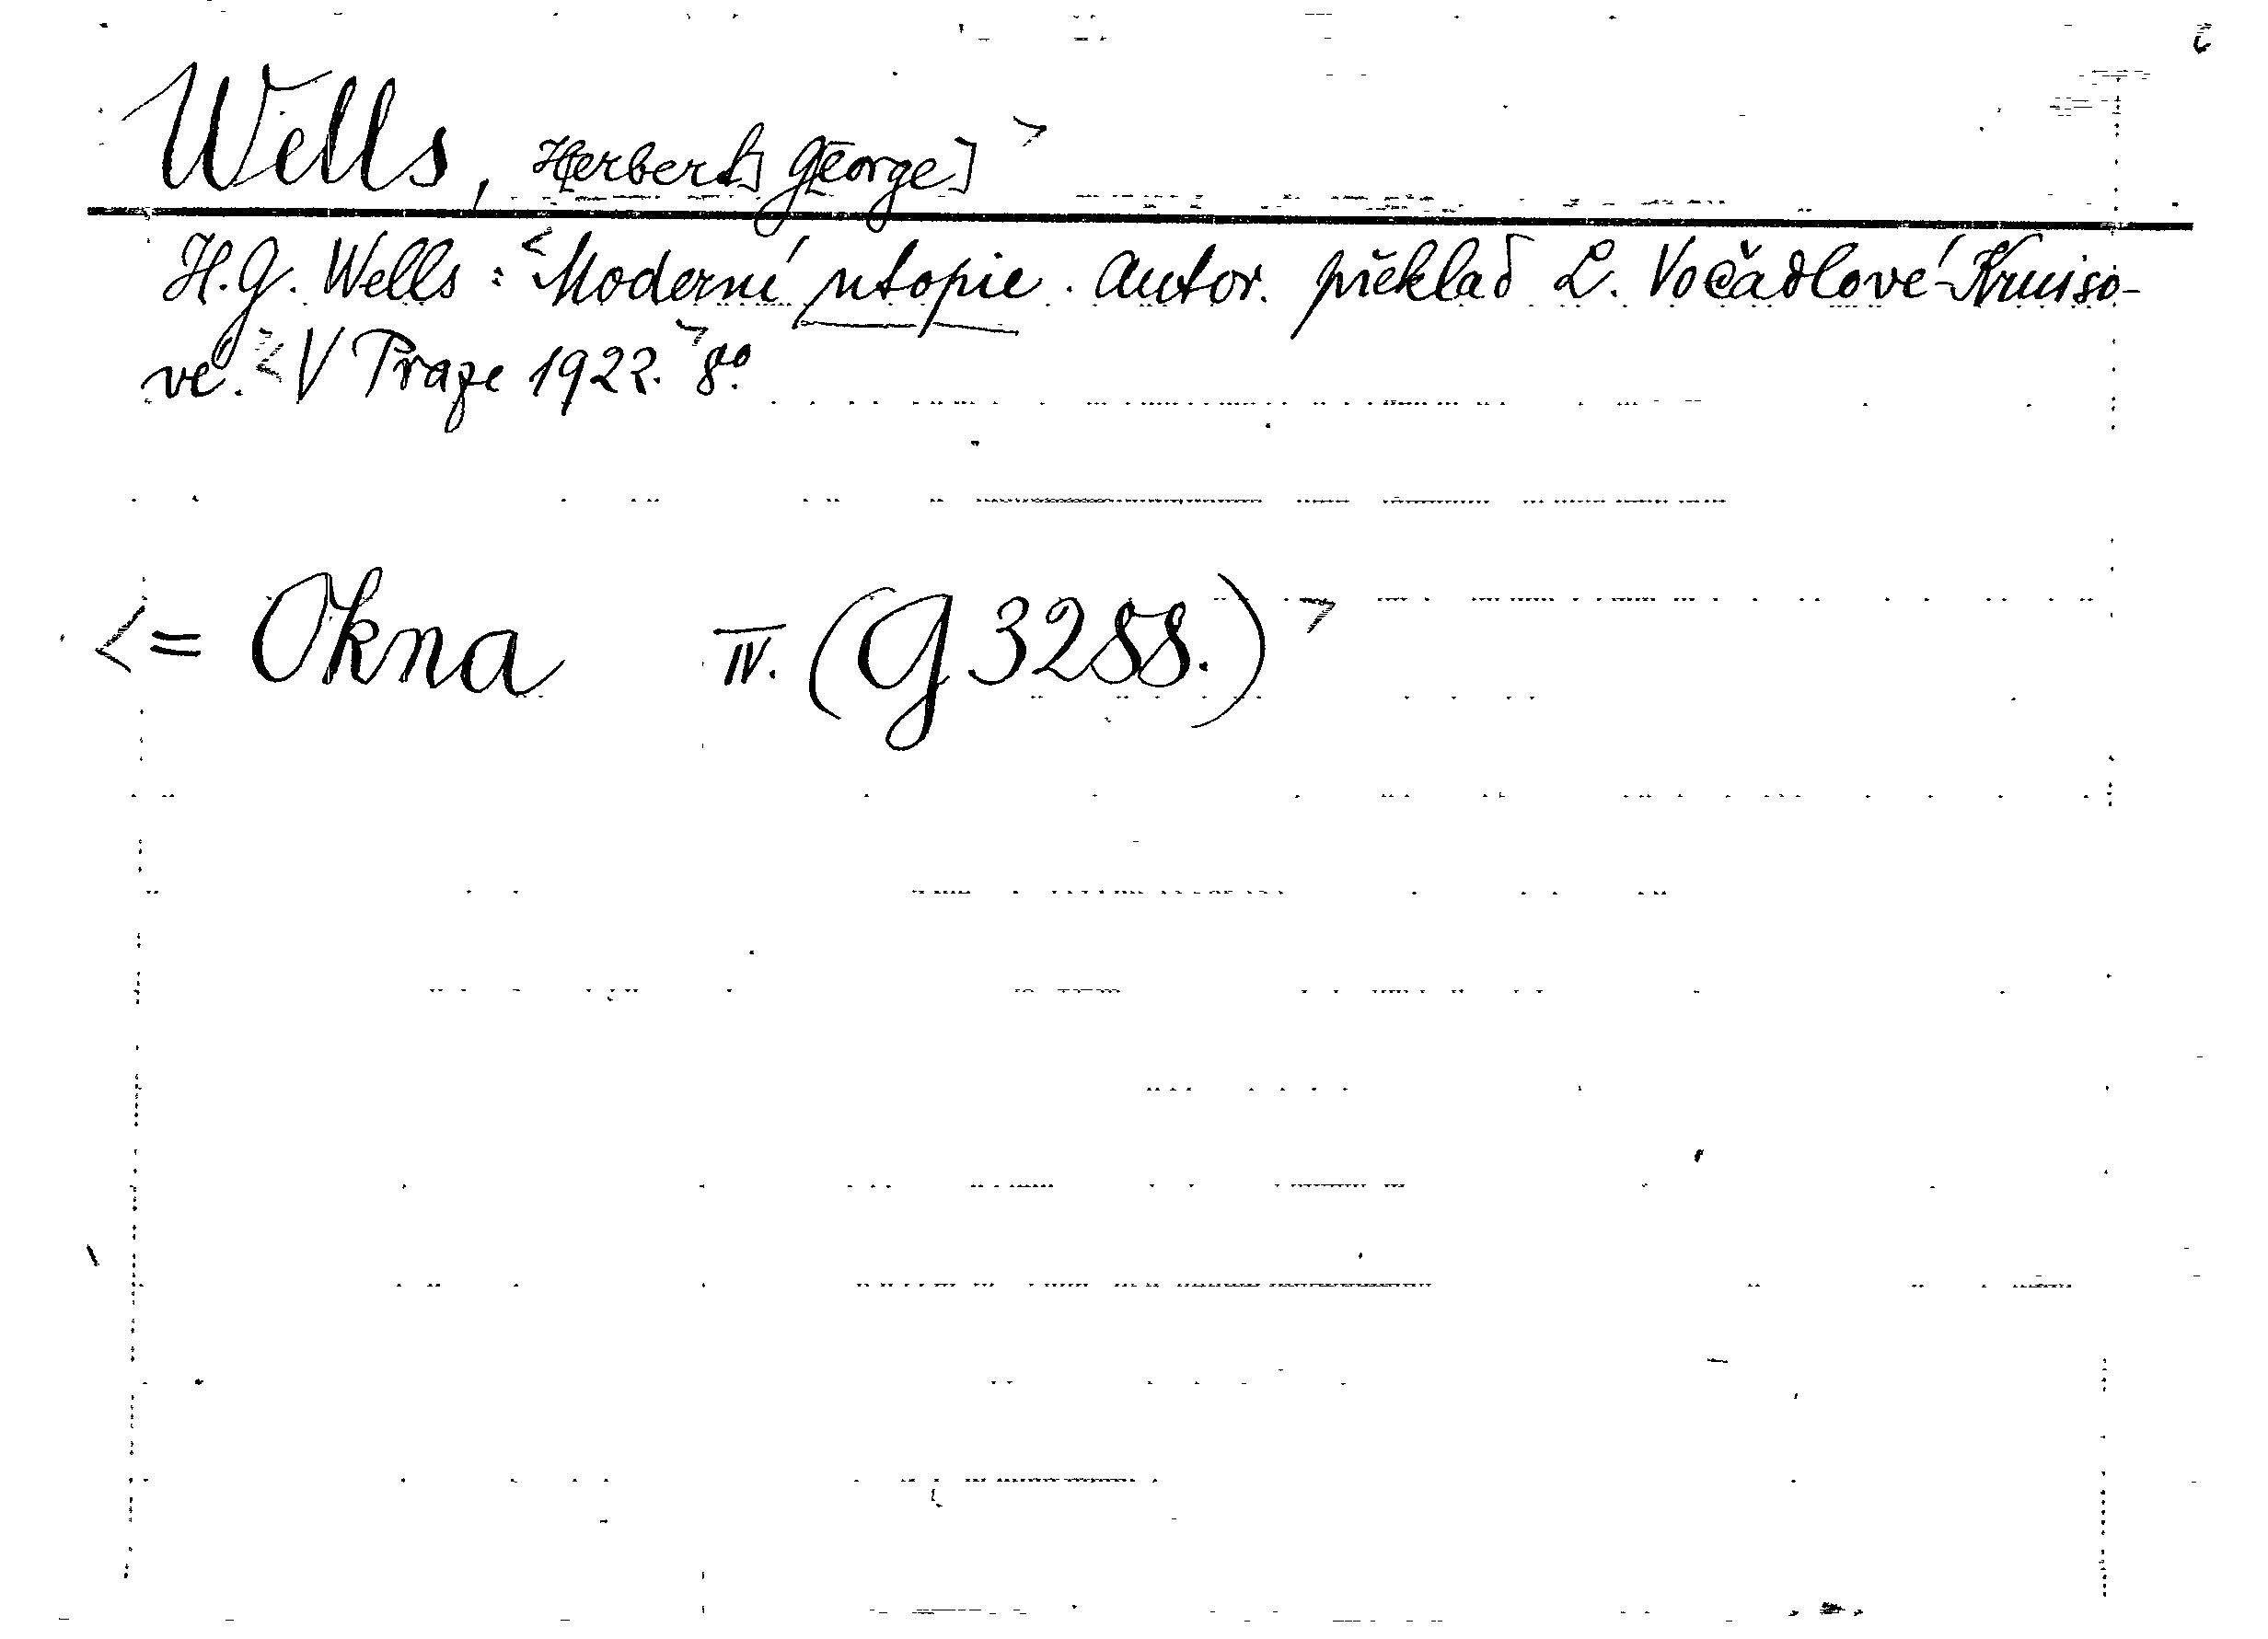 Wells, H[erbert] G[eorge] >
H. G. Wells: < Moderní utopie. Autor. překlad L. Vočadlové-Kruiso-
vé. < V Praze 1922. > 8°.
< = Okna IV. (G 3288.) >